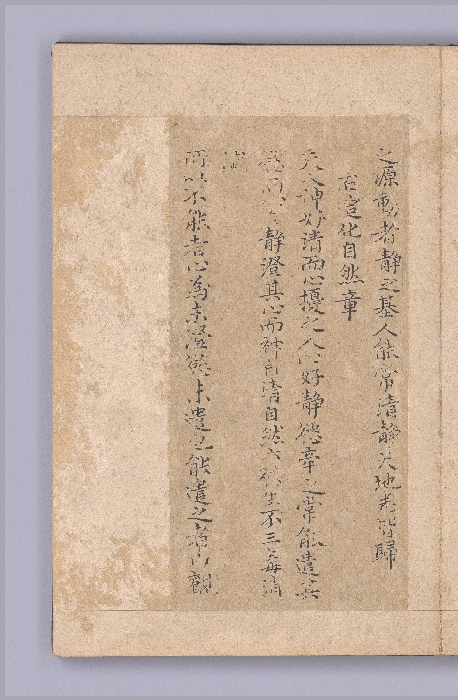 之源動者靜之基人能常清靜天地悉皆歸
右造化自然章
夫人神好清而心擾之人心好靜慾牽之常能遣其
慾而心自靜澄其心而神自清自然六慾生不三毒消
滅
所以不能者心為未澄慾未遣也能遣之者內觀